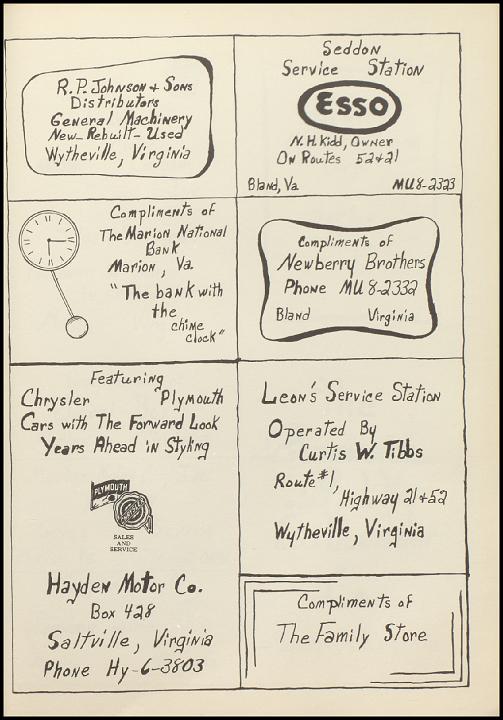 R. P. Johnson & Sons
Distributors
General Machinery
New - Rebuilt - Used
Wytheville, Virginia
Seddon
Service Station
Esso
N. H. Kidd, Owner
On Routes 52 & 21
Bland, Va. MU 8-2323
Compliments of
The Marion National
Bank
Marion, Va.
"The bank with
the
chime
clock"
Compliments of
Newberry Brothers
Phone MU 8-2332
Bland Virginia
Featuring
Chrysler Plymouth
Cars with The Forward Look
Years Ahead in Styling
PLYMOUTH
SALES
AND
SERVICE
Hayden Motor Co.
Box 428
Saltville, Virginia
Phone Hy-6-3803
Leon's Service Station
Operated By
Curtis W. Tibbs
Route #1,
Highway 21 & 52
Wytheville, Virginia
Compliments of
The Family Store